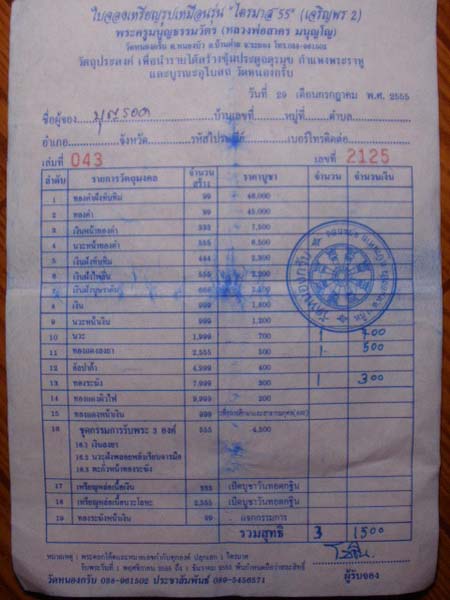 ใบจองเหรียญรูปเหมือนรุ่น "ไตรมาส 55" (เจริญพร 2)
พระครูมนูญธรรมวัตร (หลวงพ่อสาคร มนุญโญ)
วัดหนองกรับ ต.หนองบัว อ.บ้านค่าย จ.ระยอง โทร.038-961502
วัตถุประสงค์ เพื่อนำรายได้สร้างซุ้มประตูจตุรมุข กำแพงพระราหู
และบูรณะอุโบสถ วัดหนองกรับ
วันที่ 29 เดือนกรกฎาคม พ.ศ. 2555
ชื่อผู้จอง บุญรอด บ้านเลขที่ หมู่ที่ ตำบล
อำเภอ จังหวัด รหัสไปรษณีย์ เบอร์โทรติดต่อ
เล่มที่ 043 เลขที่ 2125
ลำดับ รายการวัตถุมงคล จำนวนสร้าง ราคาบูชา จำนวน จำนวนเงิน
1 ทองคำฝังทับทิม 99 48,000
2 ทองคำ 99 45,000
3 เงินหน้าทองคำ 333 7,500
4 นวะหน้าทองคำ 555 6,500
5 เงินฝังทับทิม 444 2,300
6 เงินฝังไพลิน 555 2,200
7 เงินฝังบุษราคัม 666
8 เงิน 999
9 นวะหน้าเงิน 999 1,200
10 นวะ 1,999 700 1 700
11 ทองแดงลงยา 2,555 500 1 500
12 อัลปาก้า 4,999 400
13 ทองระฆัง 7,999 300 1 300
14 ทองแดงผิวไฟ 9,999 200
15 ทองแดงหน้าเงิน 999
16 ชุดกรรมการรับพระ 3 องค์ 555 4,500
16.1 เงินลงยา
16.2 นวะฝังพลอยหลังเรียบจารมือ
16.3 ตะกั่วหน้าทองระฆัง
17 เหรียญหล่อเนื้อเงิน 555 เปิดบูชาวันทอดกฐิน
18 เหรียญหล่อเนื้อนวะโลหะ 2,555 เปิดบูชาวันทอดกฐิน
19 ทองระฆังหน้าเงิน 99 แจกกรรมการ
รวมสุทธิ 3 1500
หมายเหตุ : พระตอกโค๊ตและหมายเลขกำกับทุกองค์ ปลุกเสก 1 ไตรมาส
ผู้รับจอง
วัดหนองกรับ 038-961502 ประชาสัมพันธ์ 089-5456571